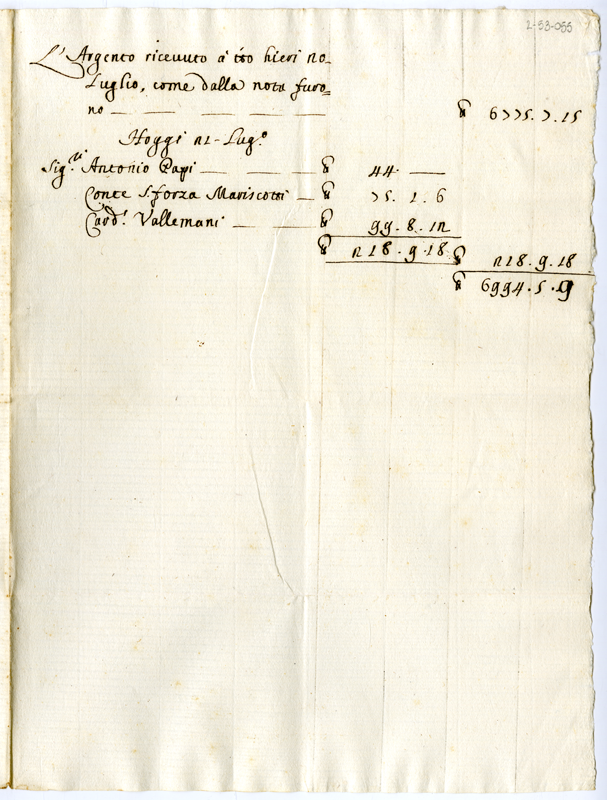 2-53-055
L'Argento ricevuto à tto hieri 20
Luglio, come dalla nota furo=
no — — — — ℔ 6775.7.15
Hoggi 21 - Lug.º
Sig.ri Antonio Papi — — — ℔ 44 —
Conte Sforza Mariscotti — ℔ 75.1.6
Card.l Vallemani — — ℔ 99.8.12
℔ 218.9.18 ℔ 218.9.18
℔ 6994.5.9